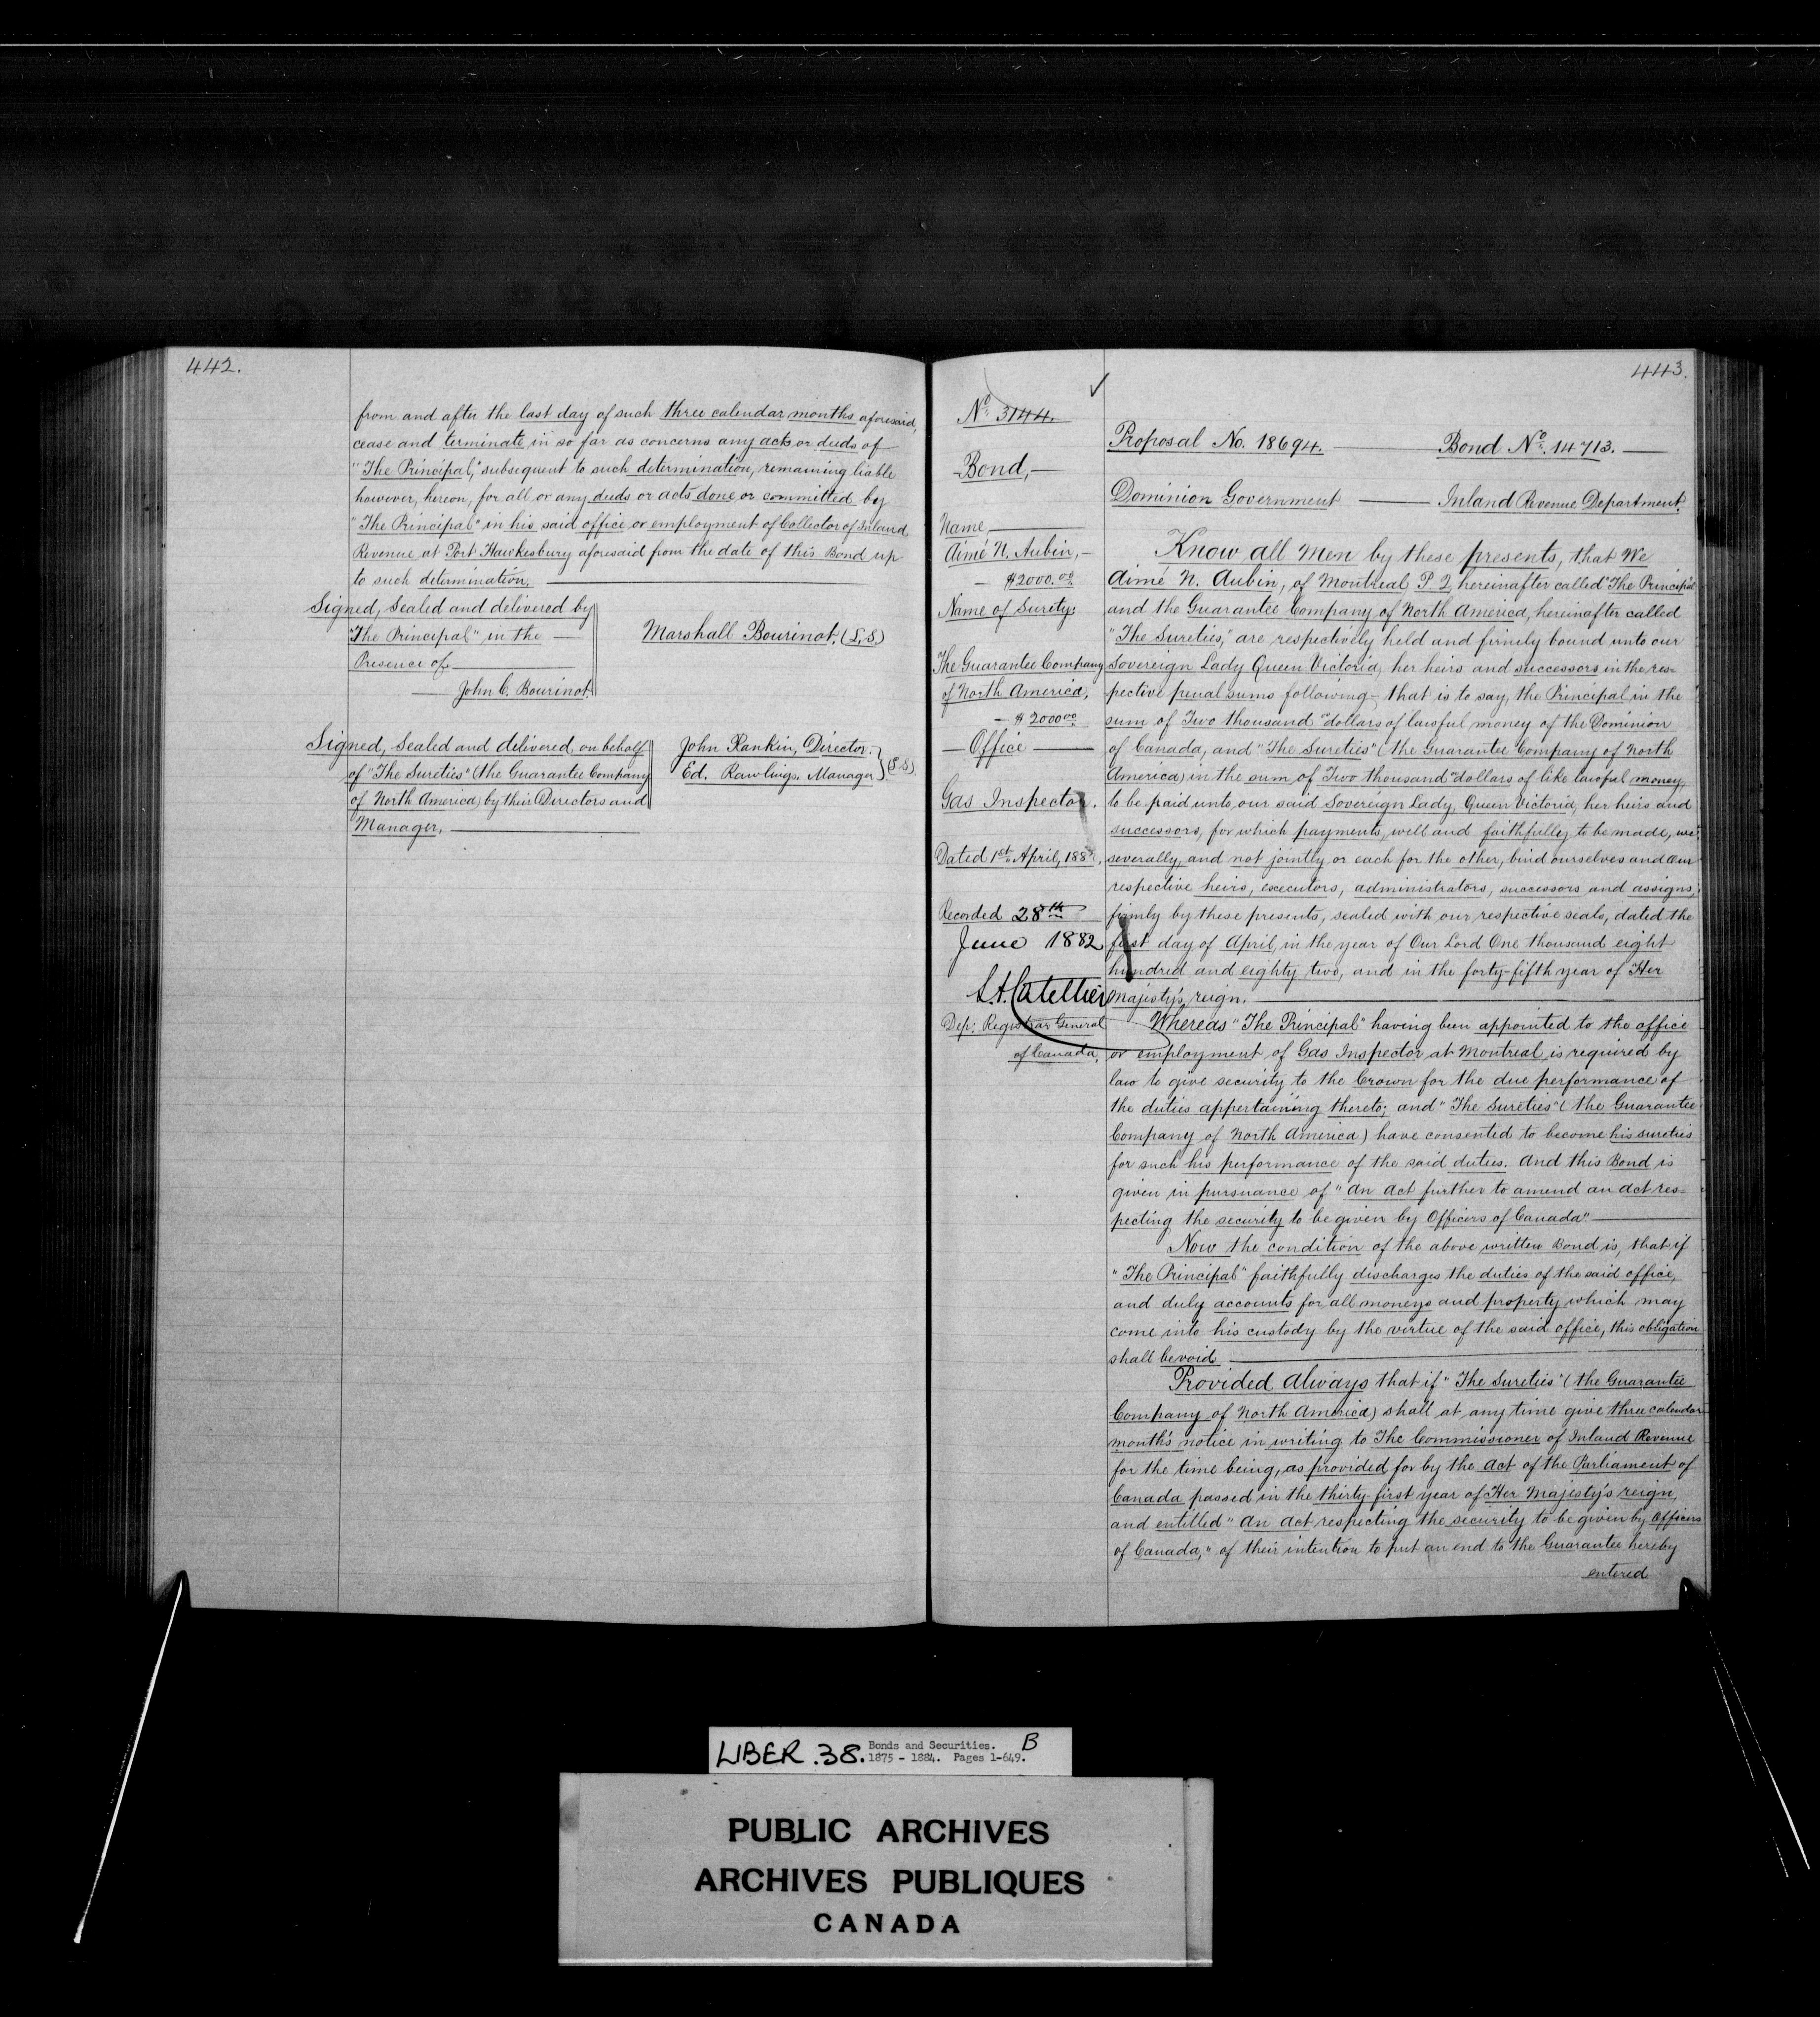 442.
from and after the last day of such three calendar months aforesaid,
cease and terminate in so far as concerns any acts or deeds of
"The Principal," subsequent to such determination, remaining liable
however, hereon, for all or any deeds or acts done or committed by
"The Principal" in his said office or employment of Collector of Inland
Revenue at Port Hawkesbury aforesaid from the date of this Bond up
to such determination.
Signed, Sealed and delivered by
"The Principal" in the
Presence of
John C. Bourinot.
Marshall Bourinot. (L.S)
Signed, Sealed and delivered, on behalf
of "The Sureties" (the Guarantee Company
of North America) by their Directors and
Manager,
John Rankin, Director.
Ed. Rawlings, Manager
(L.S)
443.
No. 3144.
Bond,
Name
Aimé N. Aubin,
$2000.00
Name of Surety:
The Guarantee Company
of North America,
$2000.00
Office
Gas Inspector.
Dated 1st April, 1882.
Recorded 28th
June 1882
L.A. Catellier
Dep: Registrar General
of Canada.
Proposal No. 18694. Bond No. 14713.
Dominion Government Inland Revenue Department.
Know all Men by these presents, that We
Aimé N. Aubin, of Montreal P. Q hereinafter called "The Principal"
and the Guarantee Company of North America, hereinafter called
"The Sureties," are respectively held and firmly bound unto our
Sovereign Lady Queen Victoria, her heirs and successors in the res-
pective penal sums following - that is to say, the Principal in the
sum of Two thousand dollars of lawful money of the Dominion
of Canada, and "The Sureties" (the Guarantee Company of North
America) in the sum of Two thousand dollars of like lawful money,
to be paid unto our said Sovereign Lady, Queen Victoria, her heirs and
successors, for which payments, well and faithfully to be made, we
severally, and not jointly or each for the other, bind ourselves and our
respective heirs, executors, administrators, successors and assigns,
firmly by these presents, sealed with our respective seals, dated the
first day of April, in the year of Our Lord One thousand eight
hundred and eighty two, and in the forty-fifth year of Her
Majesty's reign.
Whereas "The Principal" having been appointed to the office
or employment of Gas Inspector at Montreal is required by
law to give security to the Crown for the due performance of
the duties appertaining thereto; and "The Sureties" (the Guarantee
Company of North America) have consented to become his sureties
for such his performance of the said duties. And this Bond is
given in pursuance of "An Act further to amend an act res-
pecting the security to be given by Officers of Canada"
Now the condition of the above written Bond is, that if
"The Principal" faithfully discharges the duties of the said office,
and duly accounts for all moneys and property which may
come into his custody by the virtue of the said office, this obligation
shall be void
Provided Always that if "The Sureties" (the Guarantee
Company of North America) shall at any time give three calendar
month's notice in writing to The Commissioner of Inland Revenue
for the time being, as provided for by the Act of the Parliament of
Canada passed in the thirty-first year of Her Majesty's reign,
and entitled "An Act respecting the security to be given by Officers
of Canada," of their intention to put an end to the Guarantee hereby
entered
LIBER .38. Bonds and Securities. B
1875 - 1884. Pages 1-649.
PUBLIC ARCHIVES
ARCHIVES PUBLIQUES
CANADA